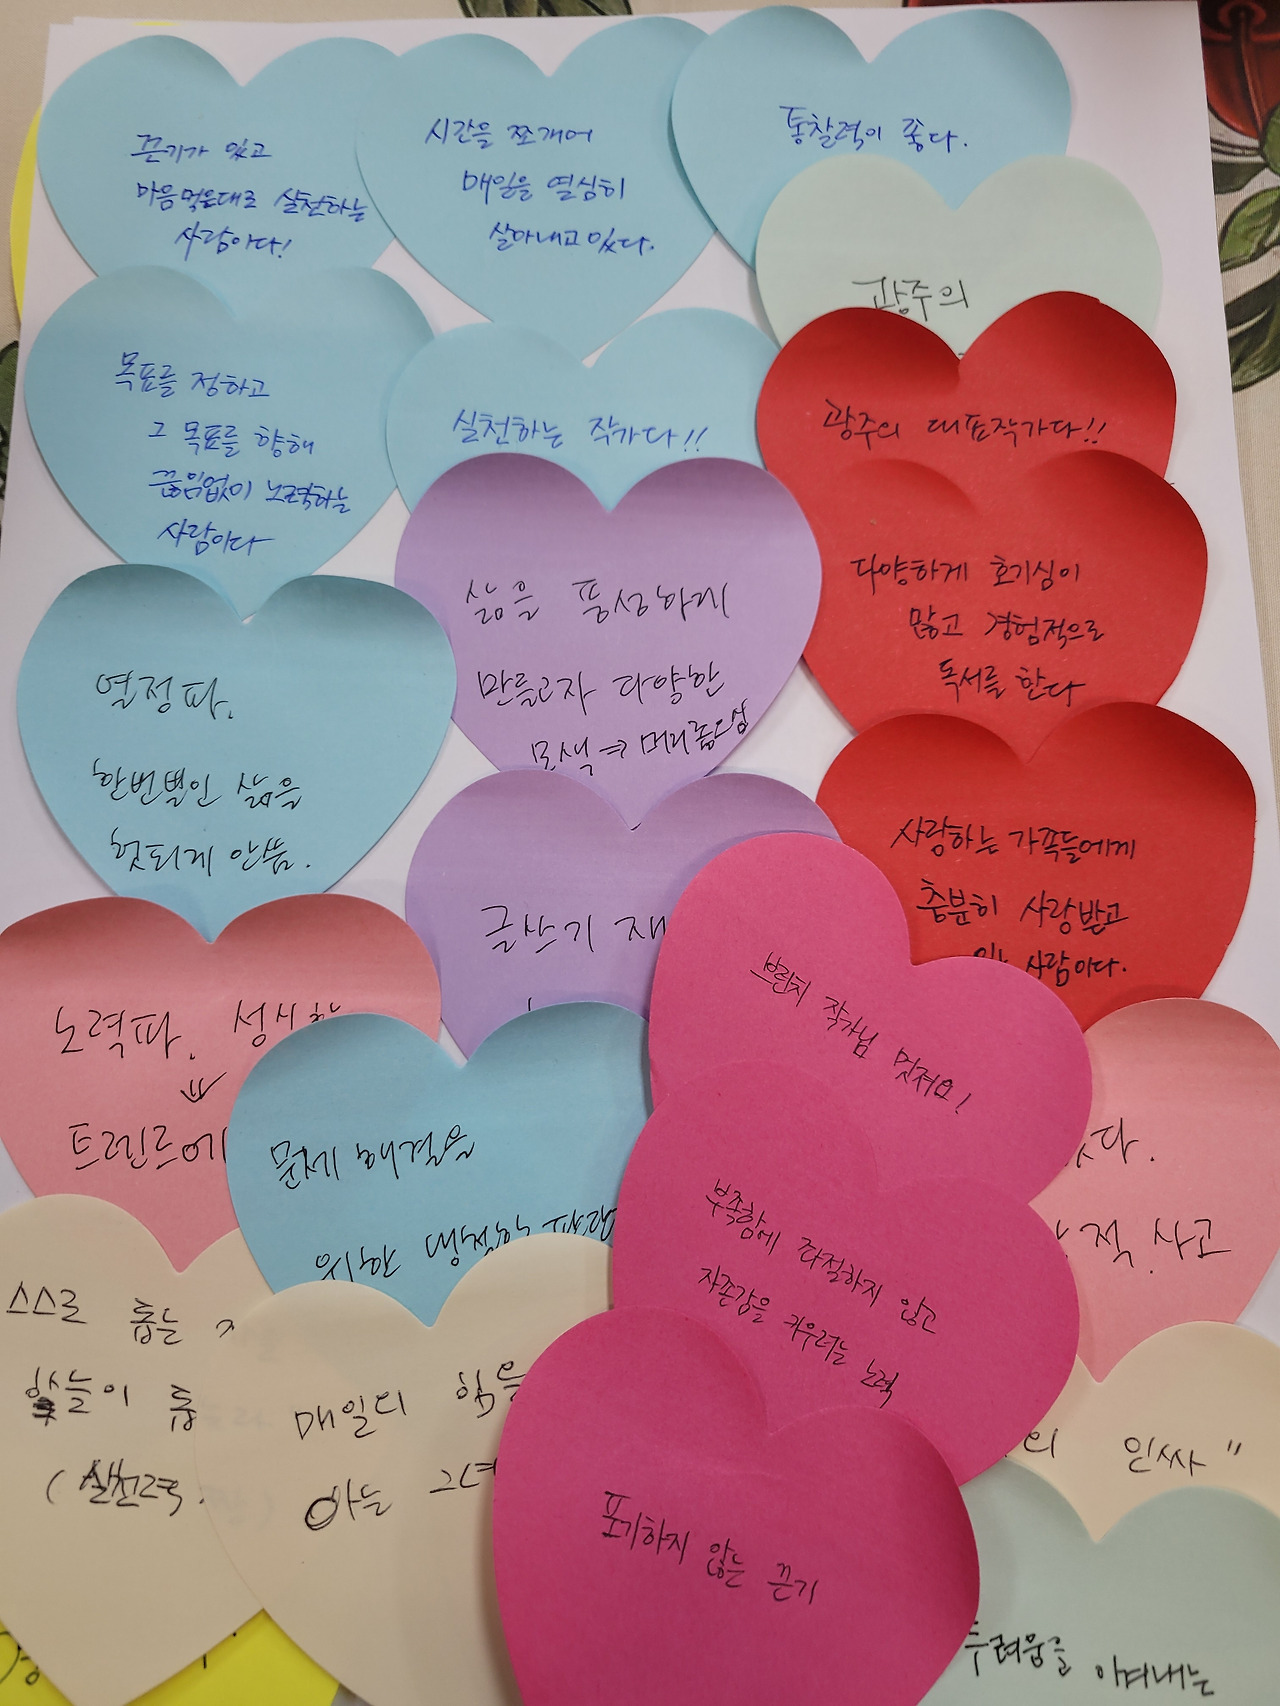 끈기가 있고
마음먹은대로 실천하는
사람이다!
시간을 쪼개어
매일을 열심히
살아내고 있다.
통찰력이 좋다.
광주의
목표를 정하고
그 목표를 향해
끊임없이 노력하는
사람이다
실천하는 작가다!!
광주의 대표작가다!!
다양하게 호기심이
많고 경험적으로
독서를 한다
삶을 풍성하게
만들고자 다양한
모색 ⇒
열정파.
한번뿐인 삶을
헛되게 안씀.
사랑하는 가족들에게
충분히 사랑받고
있는 사람이다.
글쓰기 재
브런치 작가님 멋져요!
노력파. 성실함
↓
트렌드에
문제 해결을
위한 냉정한 판단
있다.
적 사고
부족함에 좌절하지 않고
자존감을 키우려는 노력
스스로 돕는
돕
(실천력
매일의 힘을
아는 그녀
의 인싸"
포기하지 않는 끈기
두려움을 이겨내는